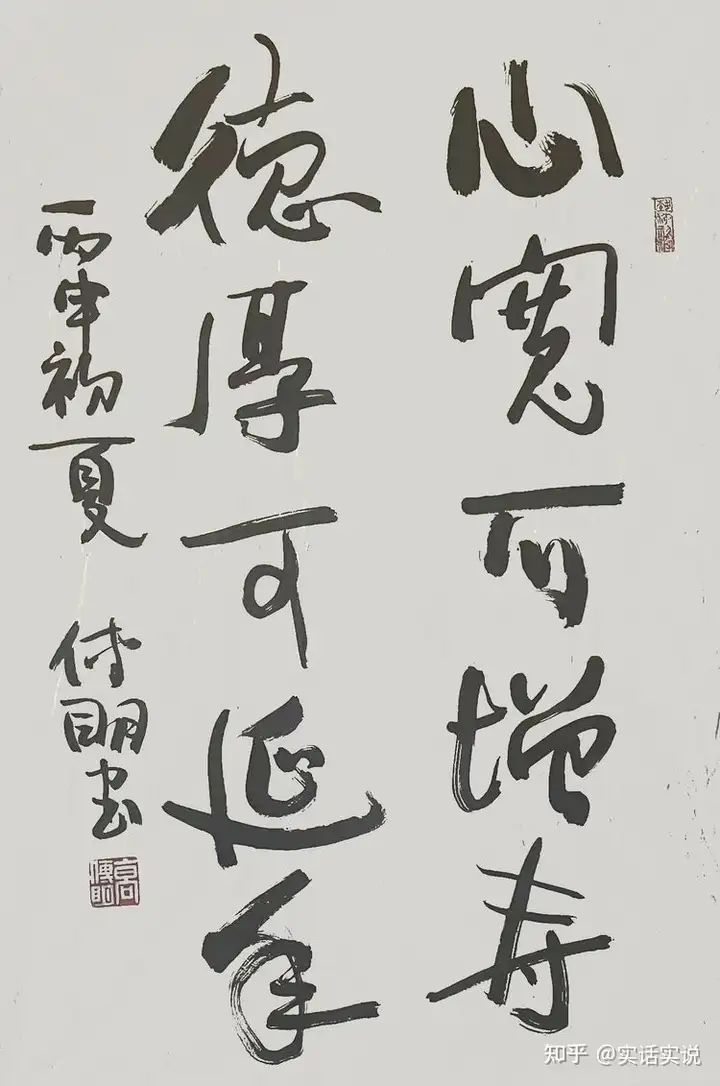 心寬可增寿
德厚可延年
丙申初夏 付明书
知乎 @实话实说